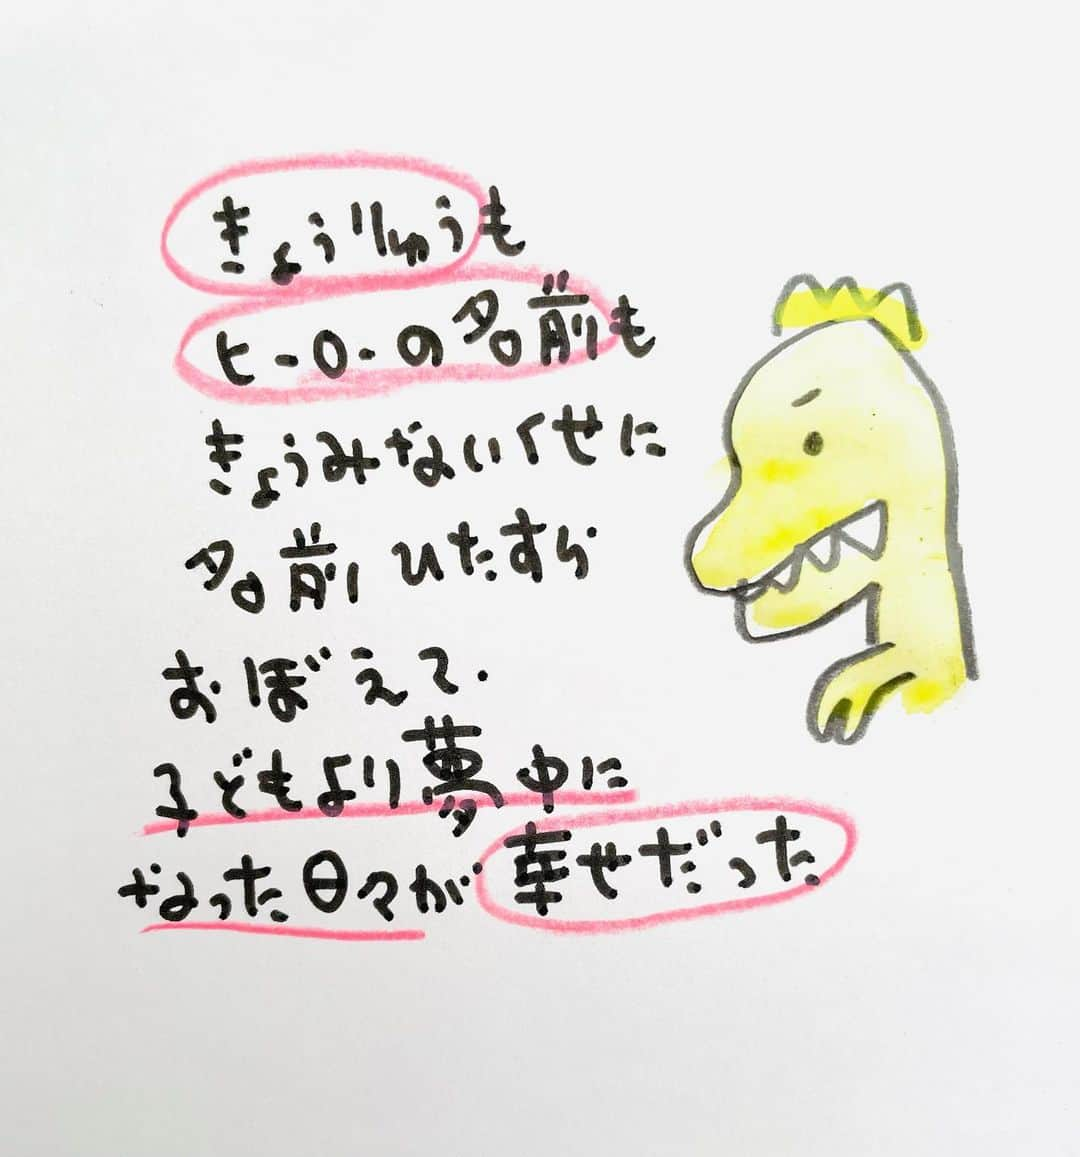 きょうりゅうも
ヒーローの名前も
きょうみないくせに
名前ひたすら
おぼえて、
子どもより夢中に
なった日々が幸せだった